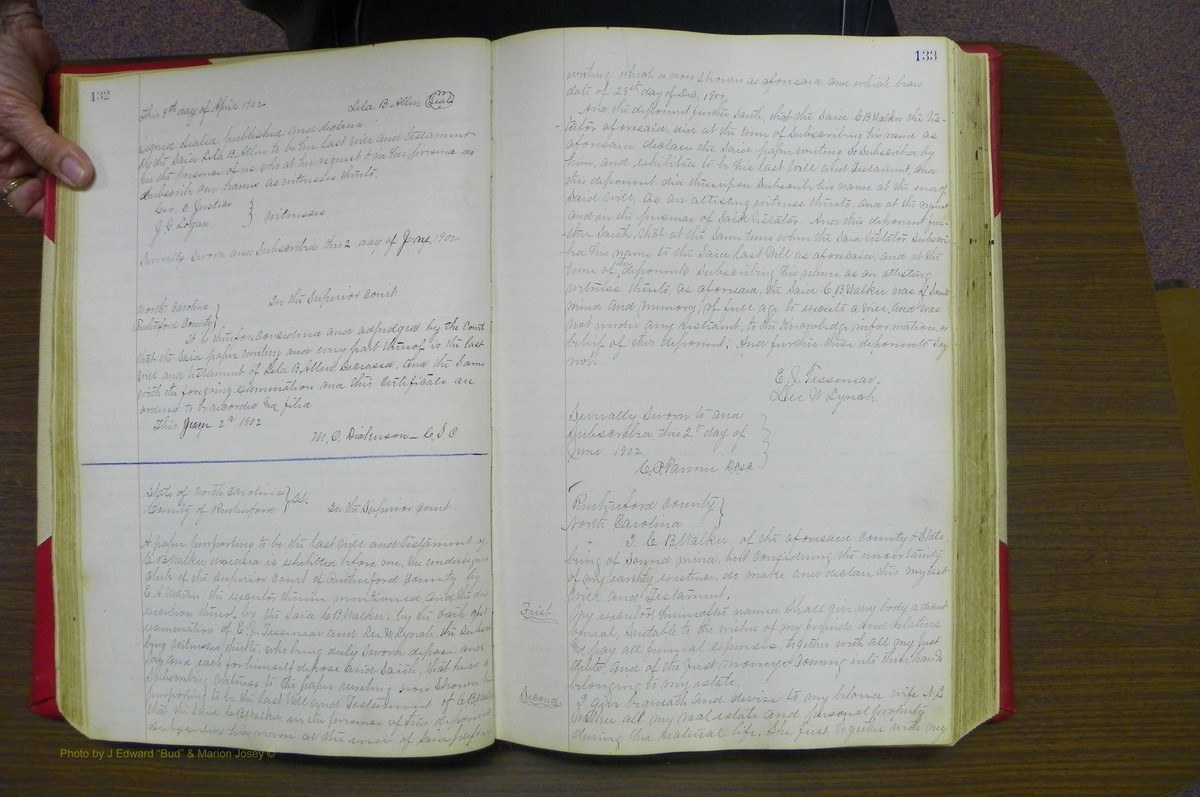 132
This 8th day of April 1902
Lila B. Allen (Seal)
signed sealed published and declared
by the said Lila B. Allen to be her last will and testament
in the presence of us who at her request & in her presence do
subscribe our names as witnesses thereto.
Geo. C. Justice
J. G. Logan } Witnesses
Severally sworn and subscribed this 2 day of June, 1902
In the Superior Court
North Carolina
Rutherford County }
It is therefore considered and adjudged by the Court
that the said paper writing and every part thereof is the last
will and testament of Lila B. Allen, deceased, and the same
with the foregoing examination and this certificate are
ordered to be recorded and filed.
This June 2d 1902
M. O. Dickerson - C.S.C
State of North Carolina
County of Rutherford } SS. In the Superior Court.
A paper purporting to be the last will and testament of
C B Walker deceased is exhibited before me, the undersigned
clerk of the Superior Court of Rutherford County by
the executor therein mentioned and the due
execution thereof by the said C B Walker, by the oath and
examination of E. J. Tessenear and Lee W. Lynch the subscri-
bing witnesses thereto. who being duly sworn depose and
say and each for himself depose and saith, that he is a
subscribing witness to the paper writing now shown him
purporting to be the last will and Testament of C B Walker
that the said C B Walker in the presence of this deponent
subscribed his name at the end of said paper
133
writing which is now shown as aforesaid, and which bears
date of 28th day of Dec, 1901.
And the deponent further saith, that the said C B Walker the tes-
tator aforesaid, did at the time of subscribing his name as
aforesaid declare the said paper writing so subscribed by
him, and exhibited to be his last will and Testament, and
this deponent did thereupon subscribe his name at the end of
said will, as an attesting witness thereto, and at the request
and in the presence of said testator. And this deponent fur-
ther saith, that at the same time when the said testator subscri-
bed his name to the said last will as aforesaid, and at the
time of the deponents subscribing his name as an attesting
witness thereto as aforesaid, the said C. B Walker was of sound
mind and memory, of full age to execute a will, and was
not under any restraint, to the knowledge information, or
belief of this deponent, And further these deponents say
not.
E. J. Tessenear.
Lee W Lynch
Severally sworn to and
Subscribed, this 2d day of
June 1902
Rutherford County
North Carolina }
I, C B Walker, of the aforesaid County & State
being of sound mind, but considering the uncertainty
of my earthly existence, do make and declare this my last
will and Testament.
First
My executor hereinafter named shall give my body a decent
burial, suitable to the wishes of my friends and relatives
and pay all funeral expenses, together with all my just
debts, and of the first moneys coming into their hands
belonging to my estate.
Second
I give bequeath and devise to my beloved wife
Walker all my real estate and personal property
during her natural life, She first, together with my
Photo by J Edward "Bud" & Marion Josey ©